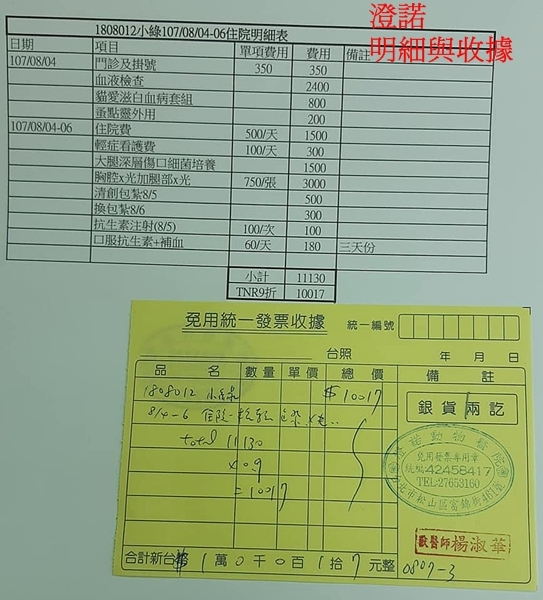 澄諾
明細與收據
1808012小綠107/08/04-06住院明細表
日期 項目 單項費用 費用 備註
107/08/04 門診及掛號 350 350
血液檢查 2400
貓愛滋白血病套組 800
蚤點靈外用 200
107/08/04-06 住院費 500/天 1500
輕症看護費 100/天 300
大腿深層傷口細菌培養 1500
胸腔x光加腿部x光 750/張 3000
清創包紮8/5 500
換包紮8/6 300
抗生素注射(8/5) 100/次 100
口服抗生素+補血 60/天 180 三天份
小計 11130
TNR9折 10017
免用統一發票收據 統一編號
台照 年 月 日
品名 數量 單價 總價 備註
1808012 小綠 $10017
8/4-6 住院
total 11130
×0.9
=10017
銀貨兩訖
澄諾動物醫院
免用發票專用章
統編:42458417
TEL:27653160
台北市松山區富錦街461號
獸醫師楊淑華
合計新台幣 1萬0千0百1拾7元整 0807-3